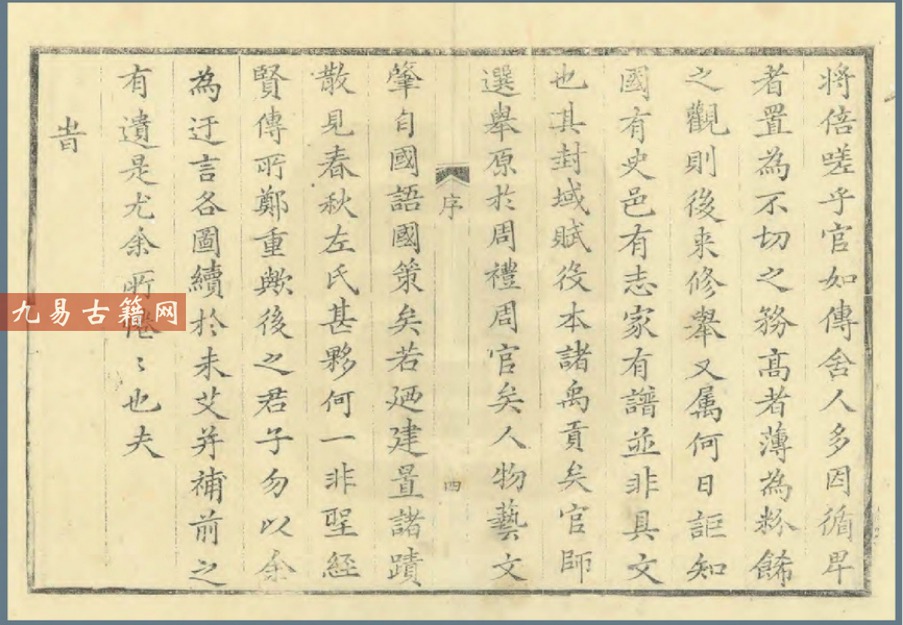 将倍嗟乎官如傳舍人多因循卑
者置為不切之務髙者薄為粉餙
之觀則後来修舉又属何日詎知
國有史邑有志家有譜並非具文
也其封域賦役本諸禹貢矣官師
選舉原於周禮周官矣人物藝文
序
四
肇自國語國策矣若廼建置諸蹟
散見春秋左氏甚夥何一非聖経
賢傳所鄭重歟後之君子勿以余
為迂言各圖續於未艾并補前之
有遺是尤余所惓〻也夫
旹
九易古籍网